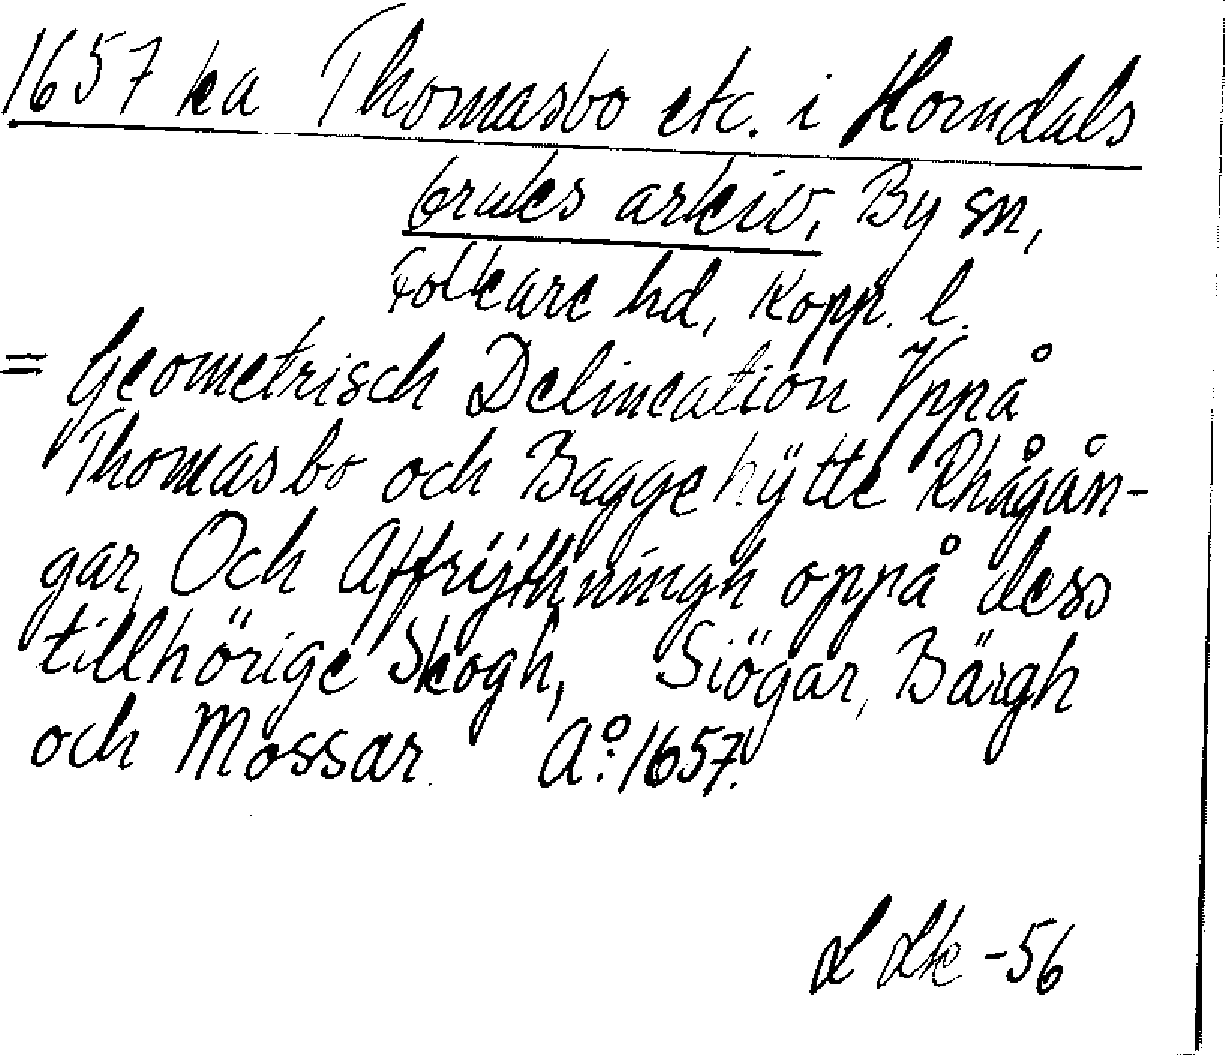 1657 ka Thomasbo etc. i Horndals
bruks arkiv, By sn,
Folkare hd, Kopp. l.
= Geometrisch Delineation Vppå
Thomasbo och Baggehÿtte Rhågån-
gar, Och Affrÿthningh oppå dess
tillhörige Skogh, Siögar, Bärgh
och Mossar. Aº: 1657.
-56